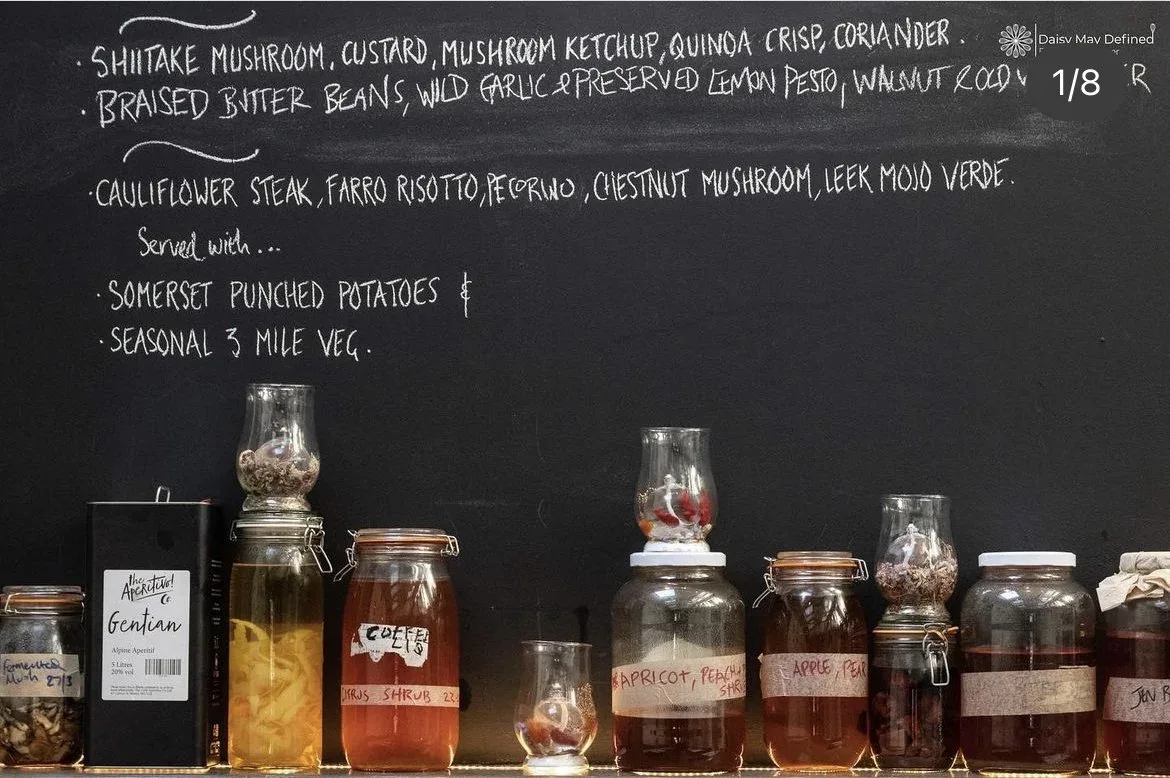 · SHIITAKE MUSHROOM, CUSTARD, MUSHROOM KETCHUP, QUINOA CRISP, CORIANDER.
· BRAISED BUTTER BEANS, WILD GARLIC & PRESERVED LEMON PESTO, WALNUT
· CAULIFLOWER STEAK, FARRO RISOTTO, PECORINO, CHESTNUT MUSHROOM, LEEK MOJO VERDE.
Served with...
· SOMERSET PUNCHED POTATOES &
· SEASONAL 3 MILE VEG.
Daisy May Defined
1/8
The
Aperitivo!
Co
Gentian
Alpine Aperitif
5 Litres
20% vol
Fermented
Mush 27/3
COFFEE
CITRUS SHRUB 22
APRICOT, PEACH
SHRUB
APPLE, PEAR
JUN